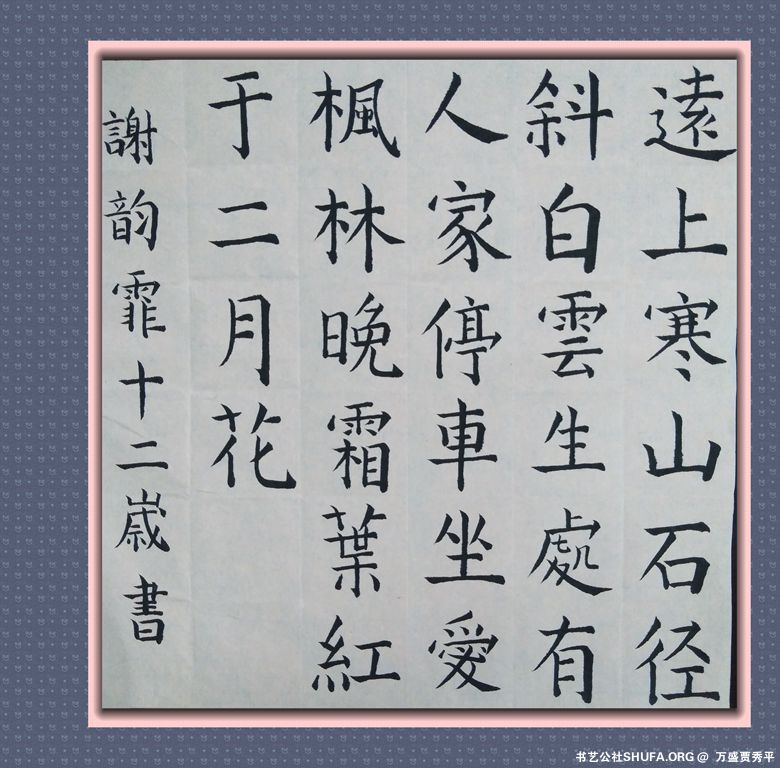 遠上寒山石径
斜白雲生處有
人家停車坐愛
楓林晚霜葉紅
于二月花
謝韵霏十二歲書
书艺公社SHUFA.ORG @ 万盛贾秀平